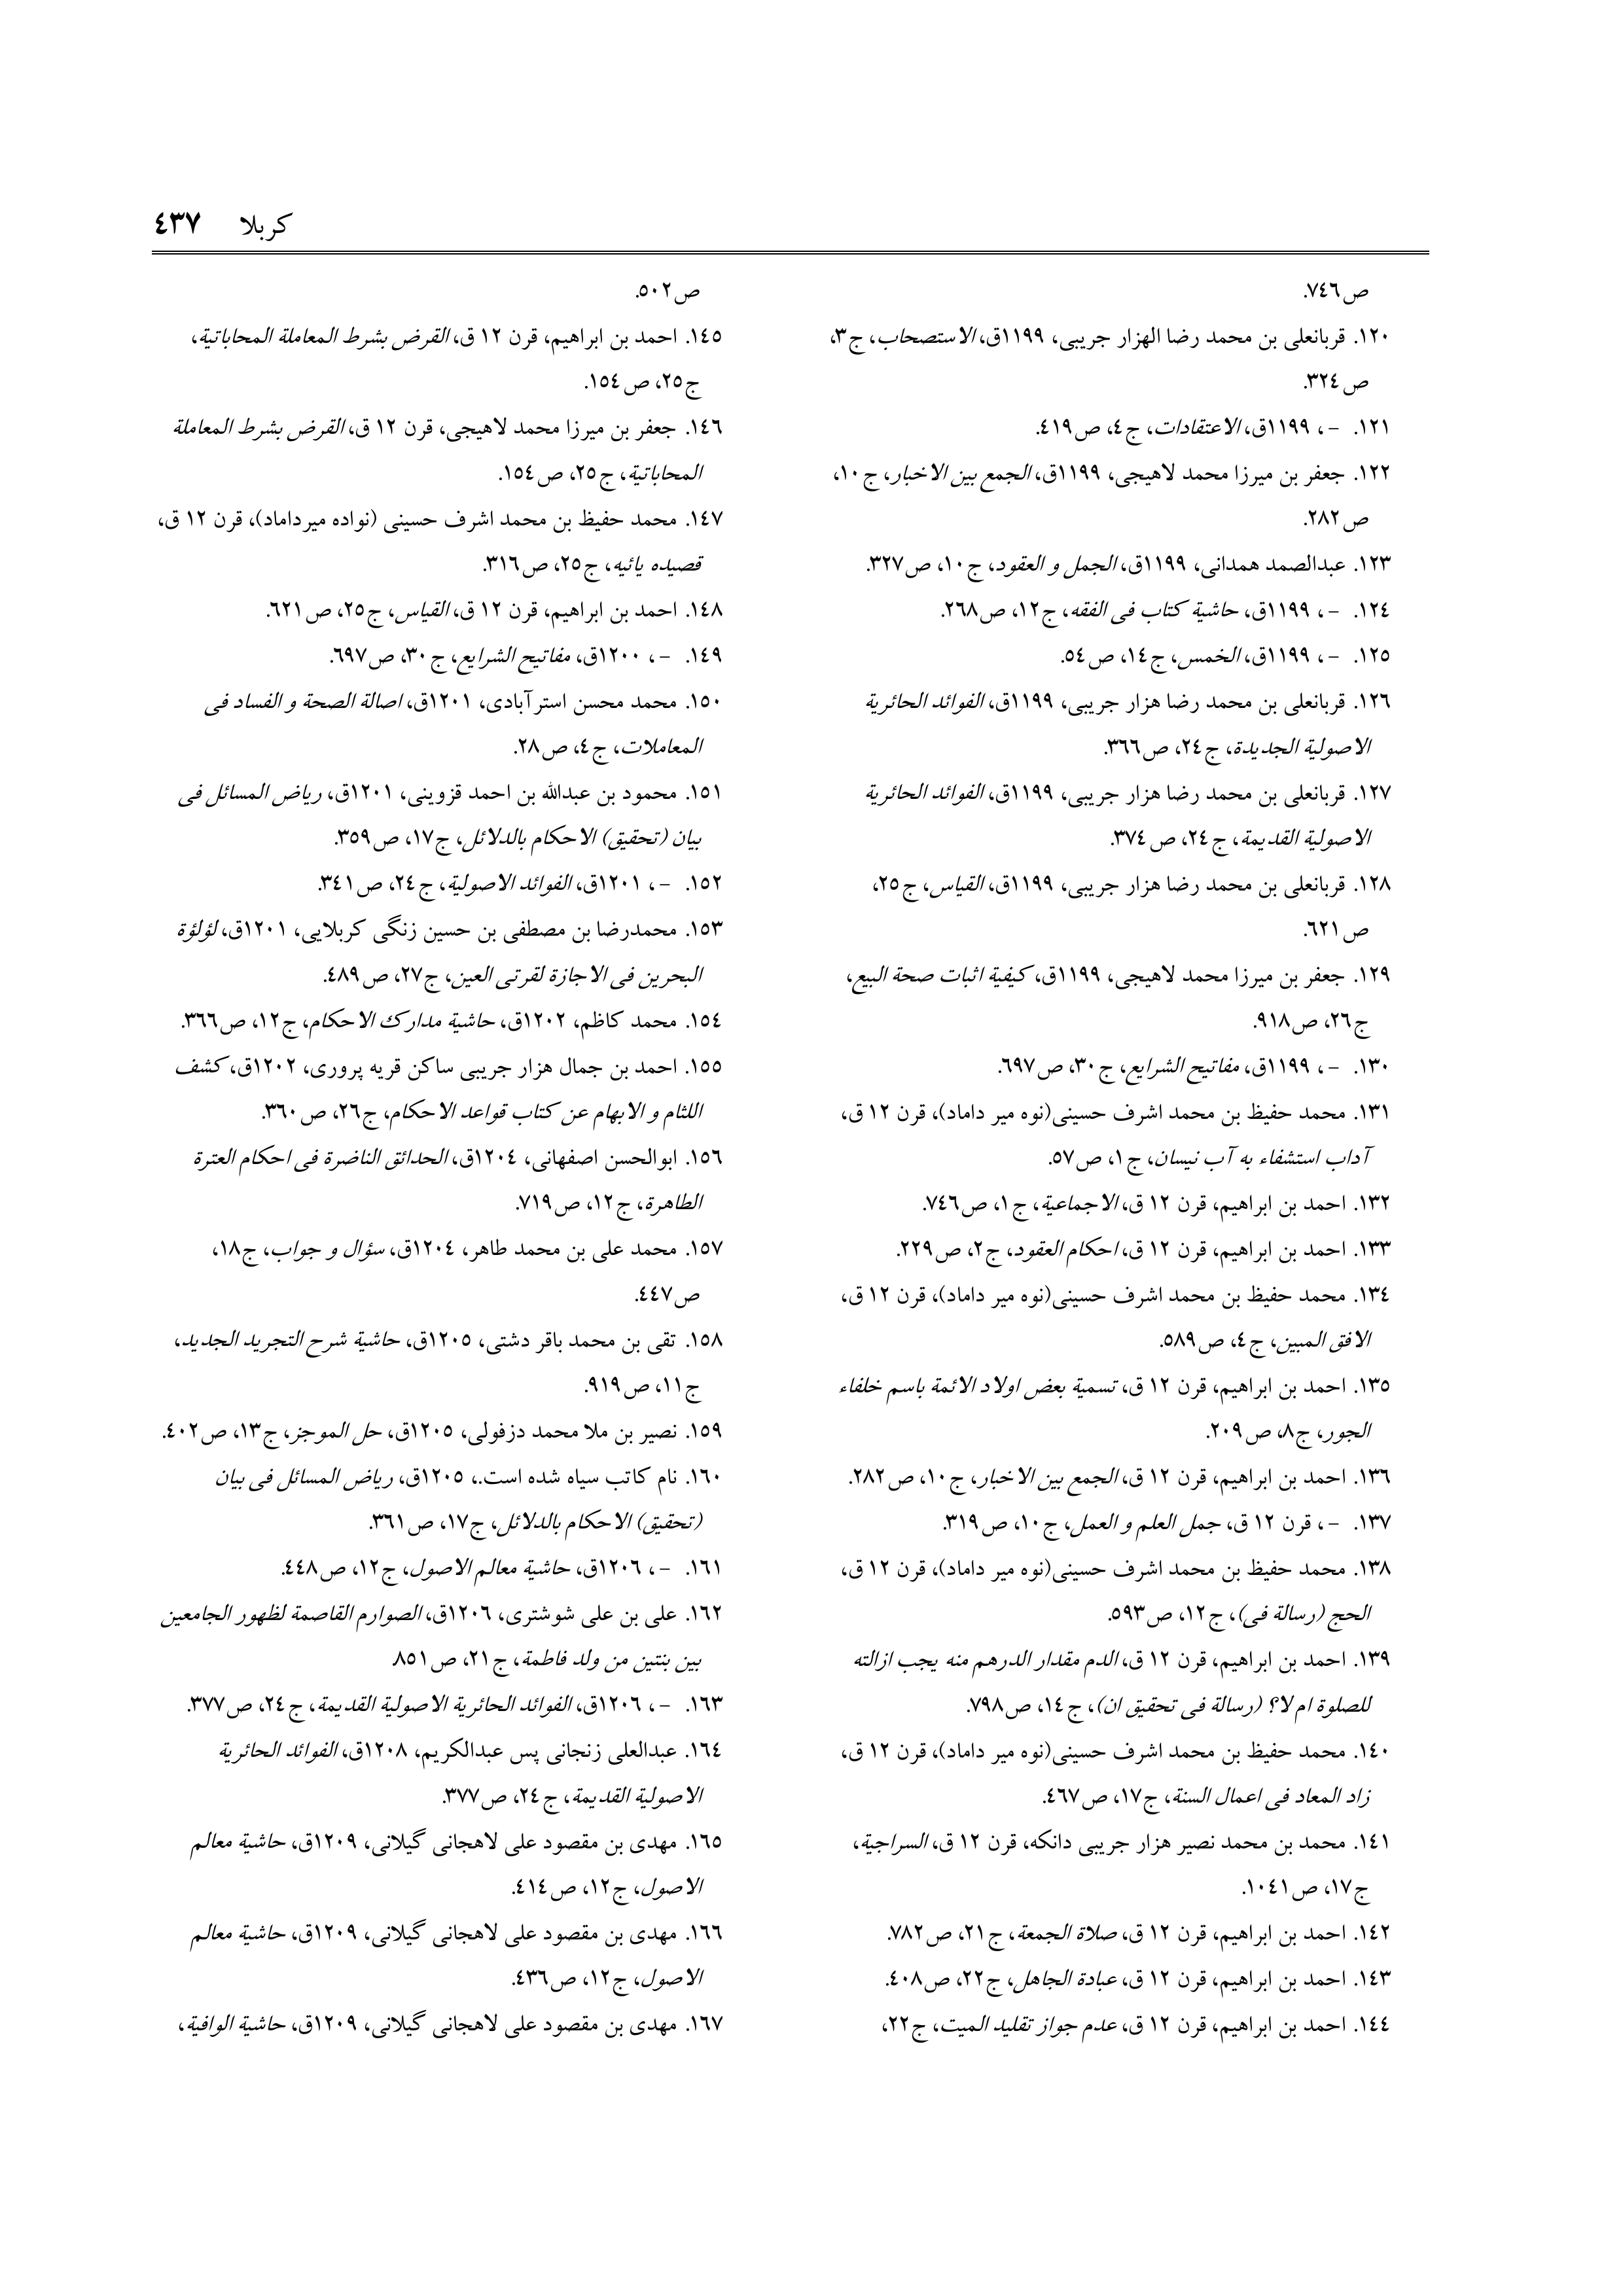 کربلا ٤٣٧
ص٧٤٦.
١٢٠. قربانعلی بن محمد رضا الهزار جریبی، ١١٩٩ق، الاستصحاب، ج٣،
ص٣٢٤.
١٢١. -، ١١٩٩ق، الاعتقادات، ج٤، ص٤١٩.
١٢٢. جعفر بن میرزا محمد لاهیجی، ١١٩٩ق، الجمع بین الاخبار، ج١٠،
ص٢٨٢.
١٢٣. عبدالصمد همدانی، ١١٩٩ق، الجمل و العقود، ج١٠، ص٣٢٧.
١٢٤. -، ١١٩٩ق، حاشیة کتاب فی الفقه، ج١٢، ص٢٦٨.
١٢٥. -، ١١٩٩ق، الخمس، ج١٤، ص٥٤.
١٢٦. قربانعلی بن محمد رضا هزار جریبی، ١١٩٩ق، الفوائد الحائریة
الاصولیة الجدیدة، ج٢٤، ص٣٦٦.
١٢٧. قربانعلی بن محمد رضا هزار جریبی، ١١٩٩ق، الفوائد الحائریة
الاصولیة القدیمة، ج٢٤، ص٣٧٤.
١٢٨. قربانعلی بن محمد رضا هزار جریبی، ١١٩٩ق، القیاس، ج٢٥،
ص٦٢١.
١٢٩. جعفر بن میرزا محمد لاهیجی، ١١٩٩ق، کیفیة اثبات صحة البیع،
ج٢٦، ص٩١٨.
١٣٠. -، ١١٩٩ق، مفاتیح الشرایع، ج٣٠، ص٦٩٧.
١٣١. محمد حفیظ بن محمد اشرف حسینی(نوه میر داماد)، قرن ١٢ ق،
آداب استشفاء به آب نیسان، ج١، ص٥٧.
١٣٢. احمد بن ابراهیم، قرن ١٢ ق، الاجماعیة، ج١، ص٧٤٦.
١٣٣. احمد بن ابراهیم، قرن ١٢ ق، احکام العقود، ج٢، ص٢٢٩.
١٣٤. محمد حفیظ بن محمد اشرف حسینی(نوه میر داماد)، قرن ١٢ ق،
الافق المبین، ج٤، ص٥٨٩.
١٣٥. احمد بن ابراهیم، قرن ١٢ ق، تسمیة بعض اولاد الائمة باسم خلفاء
الجور، ج٨، ص٢٠٩.
١٣٦. احمد بن ابراهیم، قرن ١٢ ق، الجمع بین الاخبار، ج١٠، ص٢٨٢.
١٣٧. -، قرن ١٢ ق، جمل العلم و العمل، ج١٠، ص٣١٩.
١٣٨. محمد حفیظ بن محمد اشرف حسینی(نوه میر داماد)، قرن ١٢ ق،
الحج (رسالة فی)، ج١٢، ص٥٩٣.
١٣٩. احمد بن ابراهیم، قرن ١٢ ق، الدم مقدار الدرهم منه یجب ازالته
للصلوة ام لا؟ (رسالة فی تحقیق ان)، ج١٤، ص٧٩٨.
١٤٠. محمد حفیظ بن محمد اشرف حسینی(نوه میر داماد)، قرن ١٢ ق،
زاد المعاد فی اعمال السنة، ج١٧، ص٤٦٧.
١٤١. محمد بن محمد نصیر هزار جریبی دانکه، قرن ١٢ ق، السراجیة،
ج١٧، ص١٠٤١.
١٤٢. احمد بن ابراهیم، قرن ١٢ ق، صلاة الجمعة، ج٢١، ص٧٨٢.
١٤٣. احمد بن ابراهیم، قرن ١٢ ق، عبادة الجاهل، ج٢٢، ص٤٠٨.
١٤٤. احمد بن ابراهیم، قرن ١٢ ق، عدم جواز تقلید المیت، ج٢٢،
ص٥٠٢.
١٤٥. احمد بن ابراهیم، قرن ١٢ ق، القرض بشرط المعاملة المحاباتیة،
ج٢٥، ص١٥٤.
١٤٦. جعفر بن میرزا محمد لاهیجی، قرن ١٢ ق، القرض بشرط المعاملة
المحاباتیة، ج٢٥، ص١٥٤.
١٤٧. محمد حفیظ بن محمد اشرف حسینی (نواده میرداماد)، قرن ١٢ ق،
قصیده یائیه، ج٢٥، ص٣١٦.
١٤٨. احمد بن ابراهیم، قرن ١٢ ق، القیاس، ج٢٥، ص٦٢١.
١٤٩. -، ١٢٠٠ق، مفاتیح الشرایع، ج٣٠، ص٦٩٧.
١٥٠. محمد محسن استرآبادی، ١٢٠١ق، اصالة الصحة و الفساد فی
المعاملات، ج٤، ص٢٨.
١٥١. محمود بن عبدالله بن احمد قزوینی، ١٢٠١ق، ریاض المسائل فی
بیان (تحقیق) الاحکام بالدلائل، ج١٧، ص٣٥٩.
١٥٢. -، ١٢٠١ق، الفوائد الاصولیة، ج٢٤، ص٣٤١.
١٥٣. محمدرضا بن مصطفی بن حسین زنگی کربلایی، ١٢٠١ق، لؤلؤة
البحرین فی الاجازة لقرتی العین، ج٢٧، ص٤٨٩.
١٥٤. محمد کاظم، ١٢٠٢ق، حاشیة مدارك الاحکام، ج١٢، ص٣٦٦.
١٥٥. احمد بن جمال هزار جریبی ساکن قریه پروری، ١٢٠٢ق، کشف
اللثام و الابهام عن کتاب قواعد الاحکام، ج٢٦، ص٣٦٠.
١٥٦. ابوالحسن اصفهانی، ١٢٠٤ق، الحدائق الناضرة فی احکام العترة
الطاهرة، ج١٢، ص٧١٩.
١٥٧. محمد علی بن محمد طاهر، ١٢٠٤ق، سؤال و جواب، ج١٨،
ص٤٤٧.
١٥٨. تقی بن محمد باقر دشتی، ١٢٠٥ق، حاشیة شرح التجرید الجدید،
ج١١، ص٩١٩.
١٥٩. نصیر بن ملا محمد دزفولی، ١٢٠٥ق، حل الموجز، ج١٣، ص٤٠٢.
١٦٠. نام کاتب سیاه شده است.، ١٢٠٥ق، ریاض المسائل فی بیان
(تحقیق) الاحکام بالدلائل، ج١٧، ص٣٦١.
١٦١. -، ١٢٠٦ق، حاشیة معالم الاصول، ج١٢، ص٤٤٨.
١٦٢. علی بن علی شوشتری، ١٢٠٦ق، الصوارم القاصمة لظهور الجامعین
بین بنتین من ولد فاطمة، ج٢١، ص٨٥١.
١٦٣. -، ١٢٠٦ق، الفوائد الحائریة الاصولیة القدیمة، ج٢٤، ص٣٧٧.
١٦٤. عبدالعلی زنجانی پس عبدالکریم، ١٢٠٨ق، الفوائد الحائریة
الاصولیة القدیمة، ج٢٤، ص٣٧٧.
١٦٥. مهدی بن مقصود علی لاهجانی گیلانی، ١٢٠٩ق، حاشیة معالم
الاصول، ج١٢، ص٤١٤.
١٦٦. مهدی بن مقصود علی لاهجانی گیلانی، ١٢٠٩ق، حاشیة معالم
الاصول، ج١٢، ص٤٣٦.
١٦٧. مهدی بن مقصود علی لاهجانی گیلانی، ١٢٠٩ق، حاشیة الوافیة،